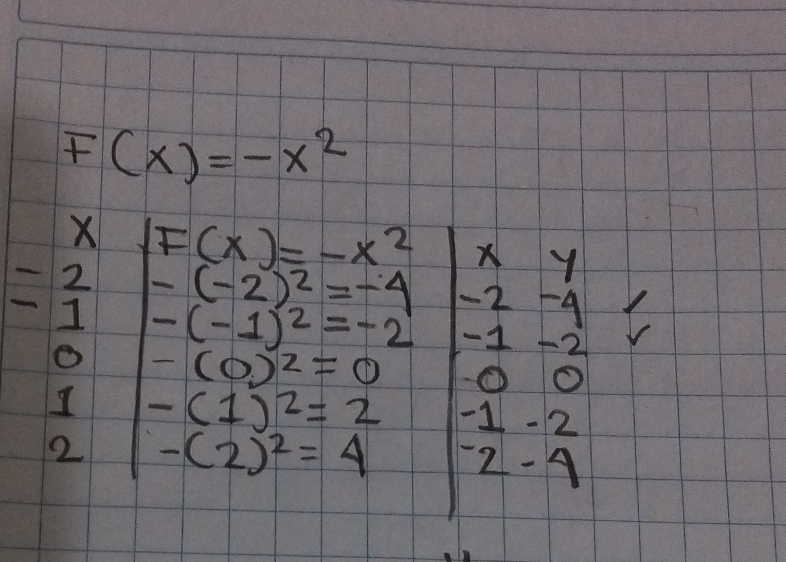 F(x)=-x²
x | F(x)=-x² | x y
-2 | -(-2)²=-4 | -2 -4 ✓
-1 | -(-1)²=-2 | -1 -2 ✓
0 | -(0)²=0 | -0 0
1 | -(1)²=2 | -1 -2
2 | -(2)²=4 | -2 -4